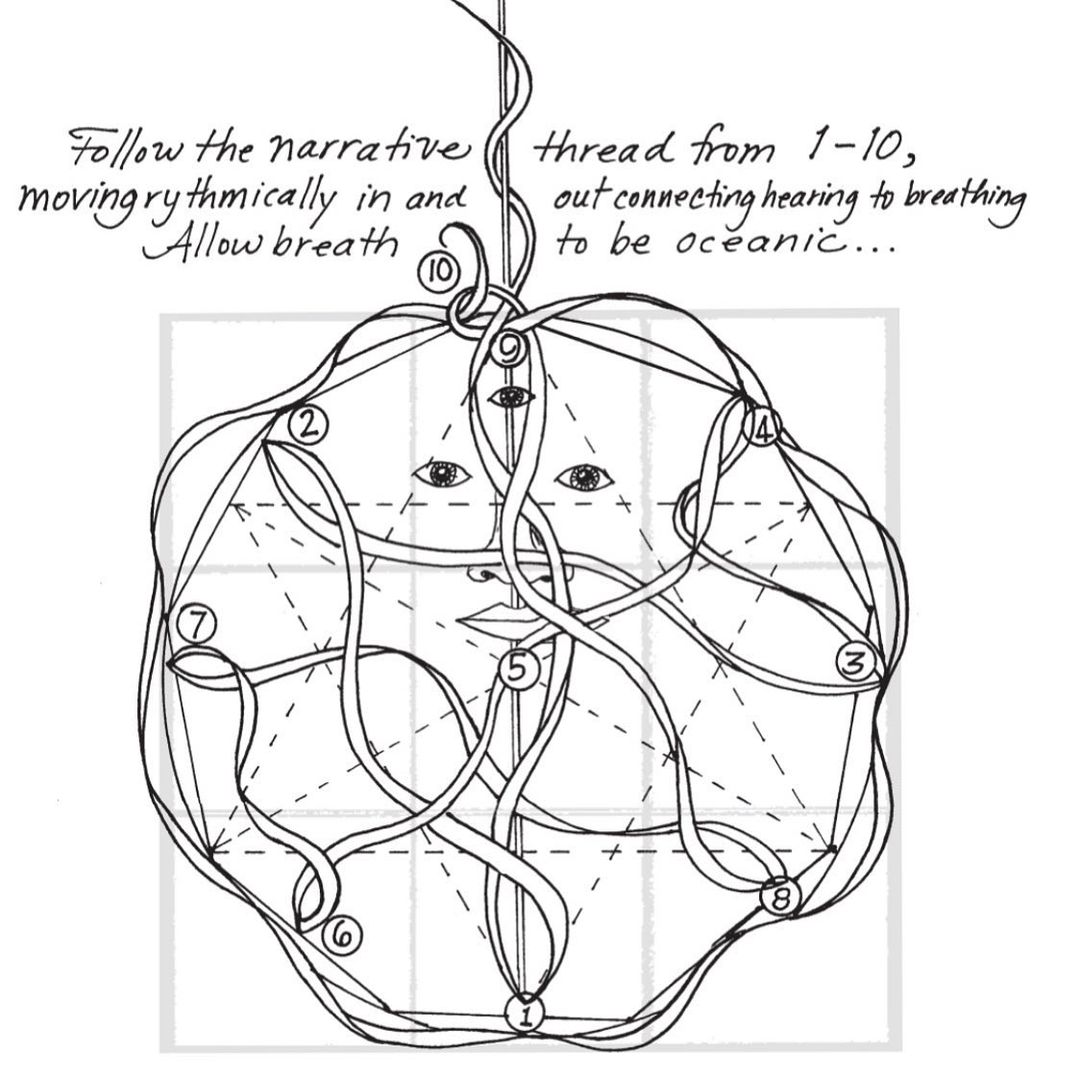 Follow the narrative thread from 1-10,
moving rythmically in and out connecting hearing to breathing
Allow breath to be oceanic...
10
9
2
4
7
3
5
8
6
1